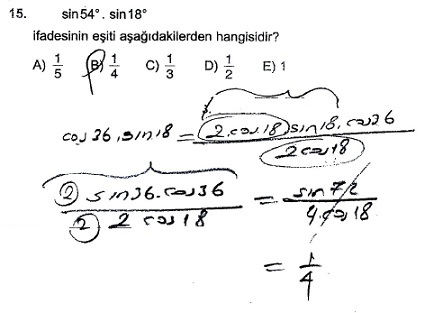 15. sin54° . sin18°
ifadesinin eşiti aşağıdakilerden hangisidir?
A) 1/5 B) 1/4 C) 1/3 D) 1/2 E) 1
cos36.sin18 = 2.cos18 sin18.cos36 / 2cos18
2 sin36.cos36 / 2 2 cos18 = sin72 / 4.cos18
= 1/4